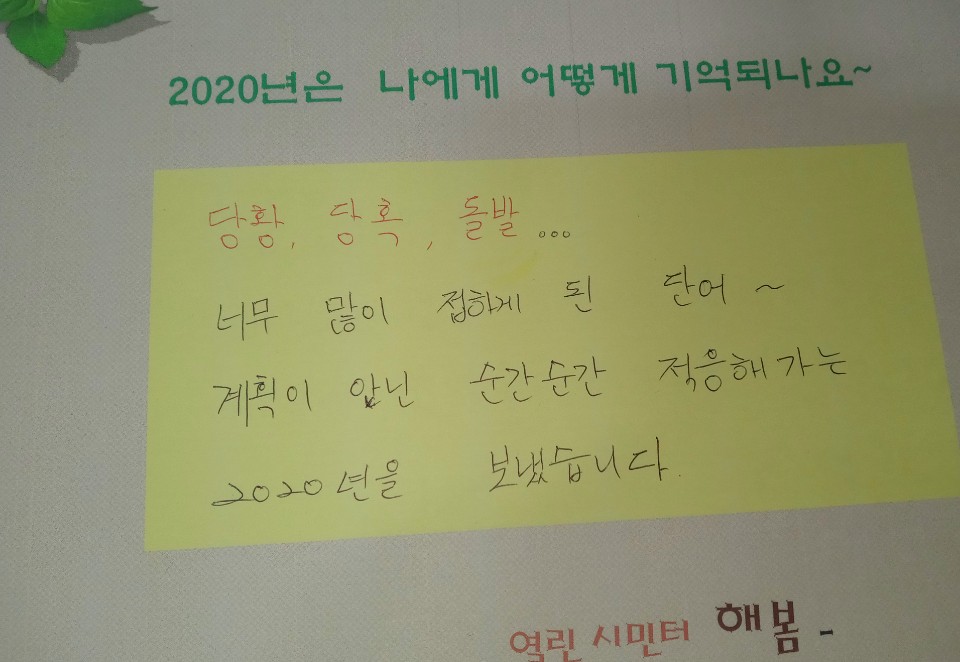 2020년은 나에게 어떻게 기억되나요~
당황, 당혹, 돌발...
너무 많이 접하게 된 단어~
계획이 앖닌 순간순간 적응해가는
2020년을 보냈습니다.
열린 시민터 해봄-